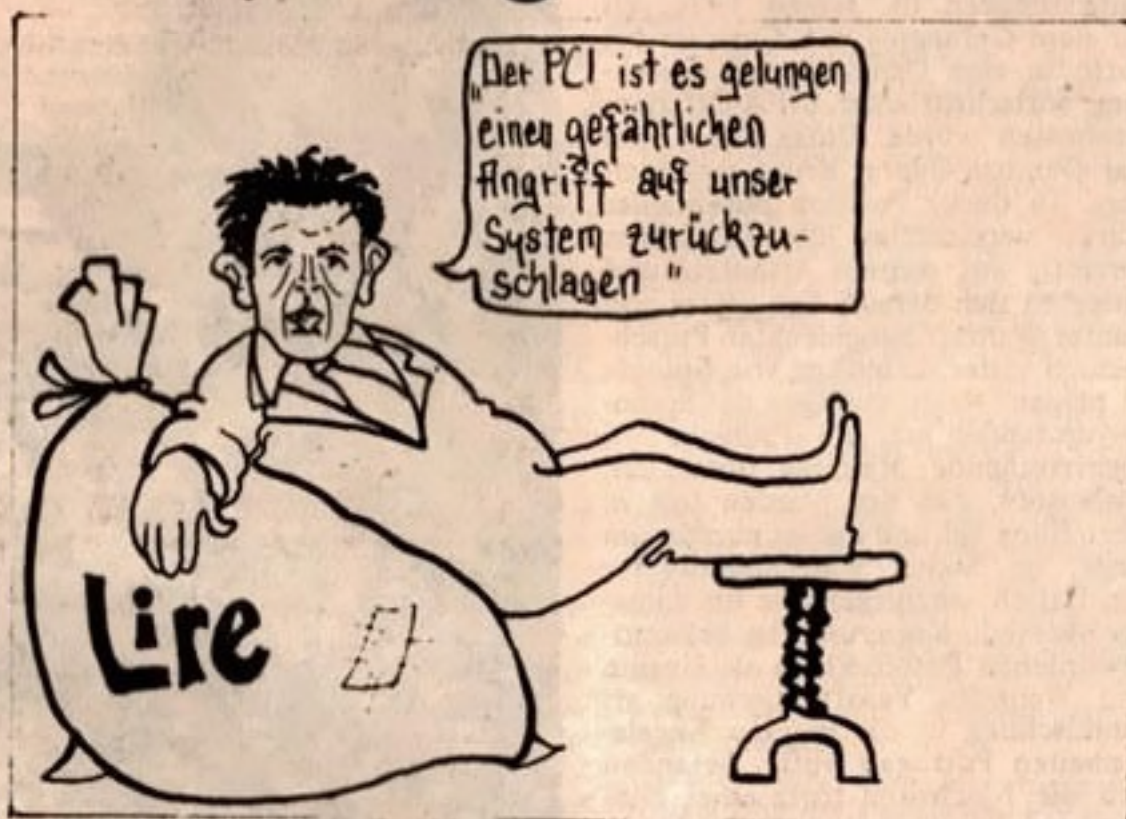 „Der PCI ist es gelungen
einen gefährlichen
Angriff auf unser
System zurückzu-
schlagen "
Lire